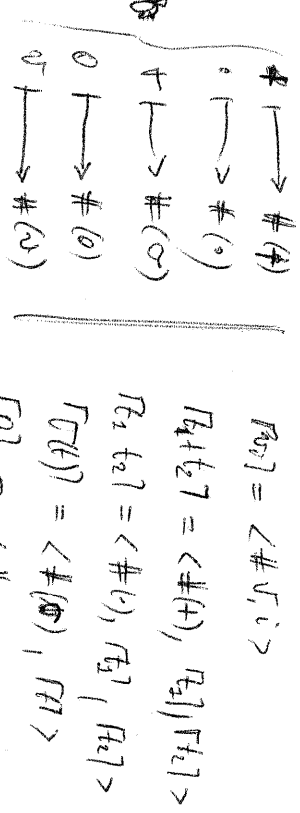 + ↦ #(+)
· ↦ #(·)
σ ↦ #(σ)
0 ↦ #(0)
v ↦ #(v)
⌜vᵢ⌝ = <#v, i>
⌜t₁+t₂⌝ = <#(+), ⌜t₁⌝, ⌜t₂⌝>
⌜t₁ t₂⌝ = <#(·), ⌜t₁⌝, ⌜t₂⌝>
⌜σ(t)⌝ = <#(σ), ⌜t⌝>